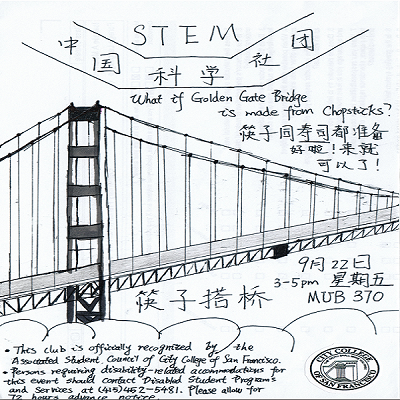 STEM
中国科学社团
What if Golden Gate Bridge
is made from Chopsticks?
筷子同寿司都准备
好啦！来就
可以了！
9月22日
3-5pm 星期五
MUB 370
筷子搭桥
• This club is officially recognized by the
Associated Student Council of City College of San Francisco.
• Persons requiring disability-related accommodations for
this event should contact Disabled Student Programs
and Services at (415)452-5481. Please allow for
72 hours advance notice.
CITY COLLEGE
OF SAN FRANCISCO